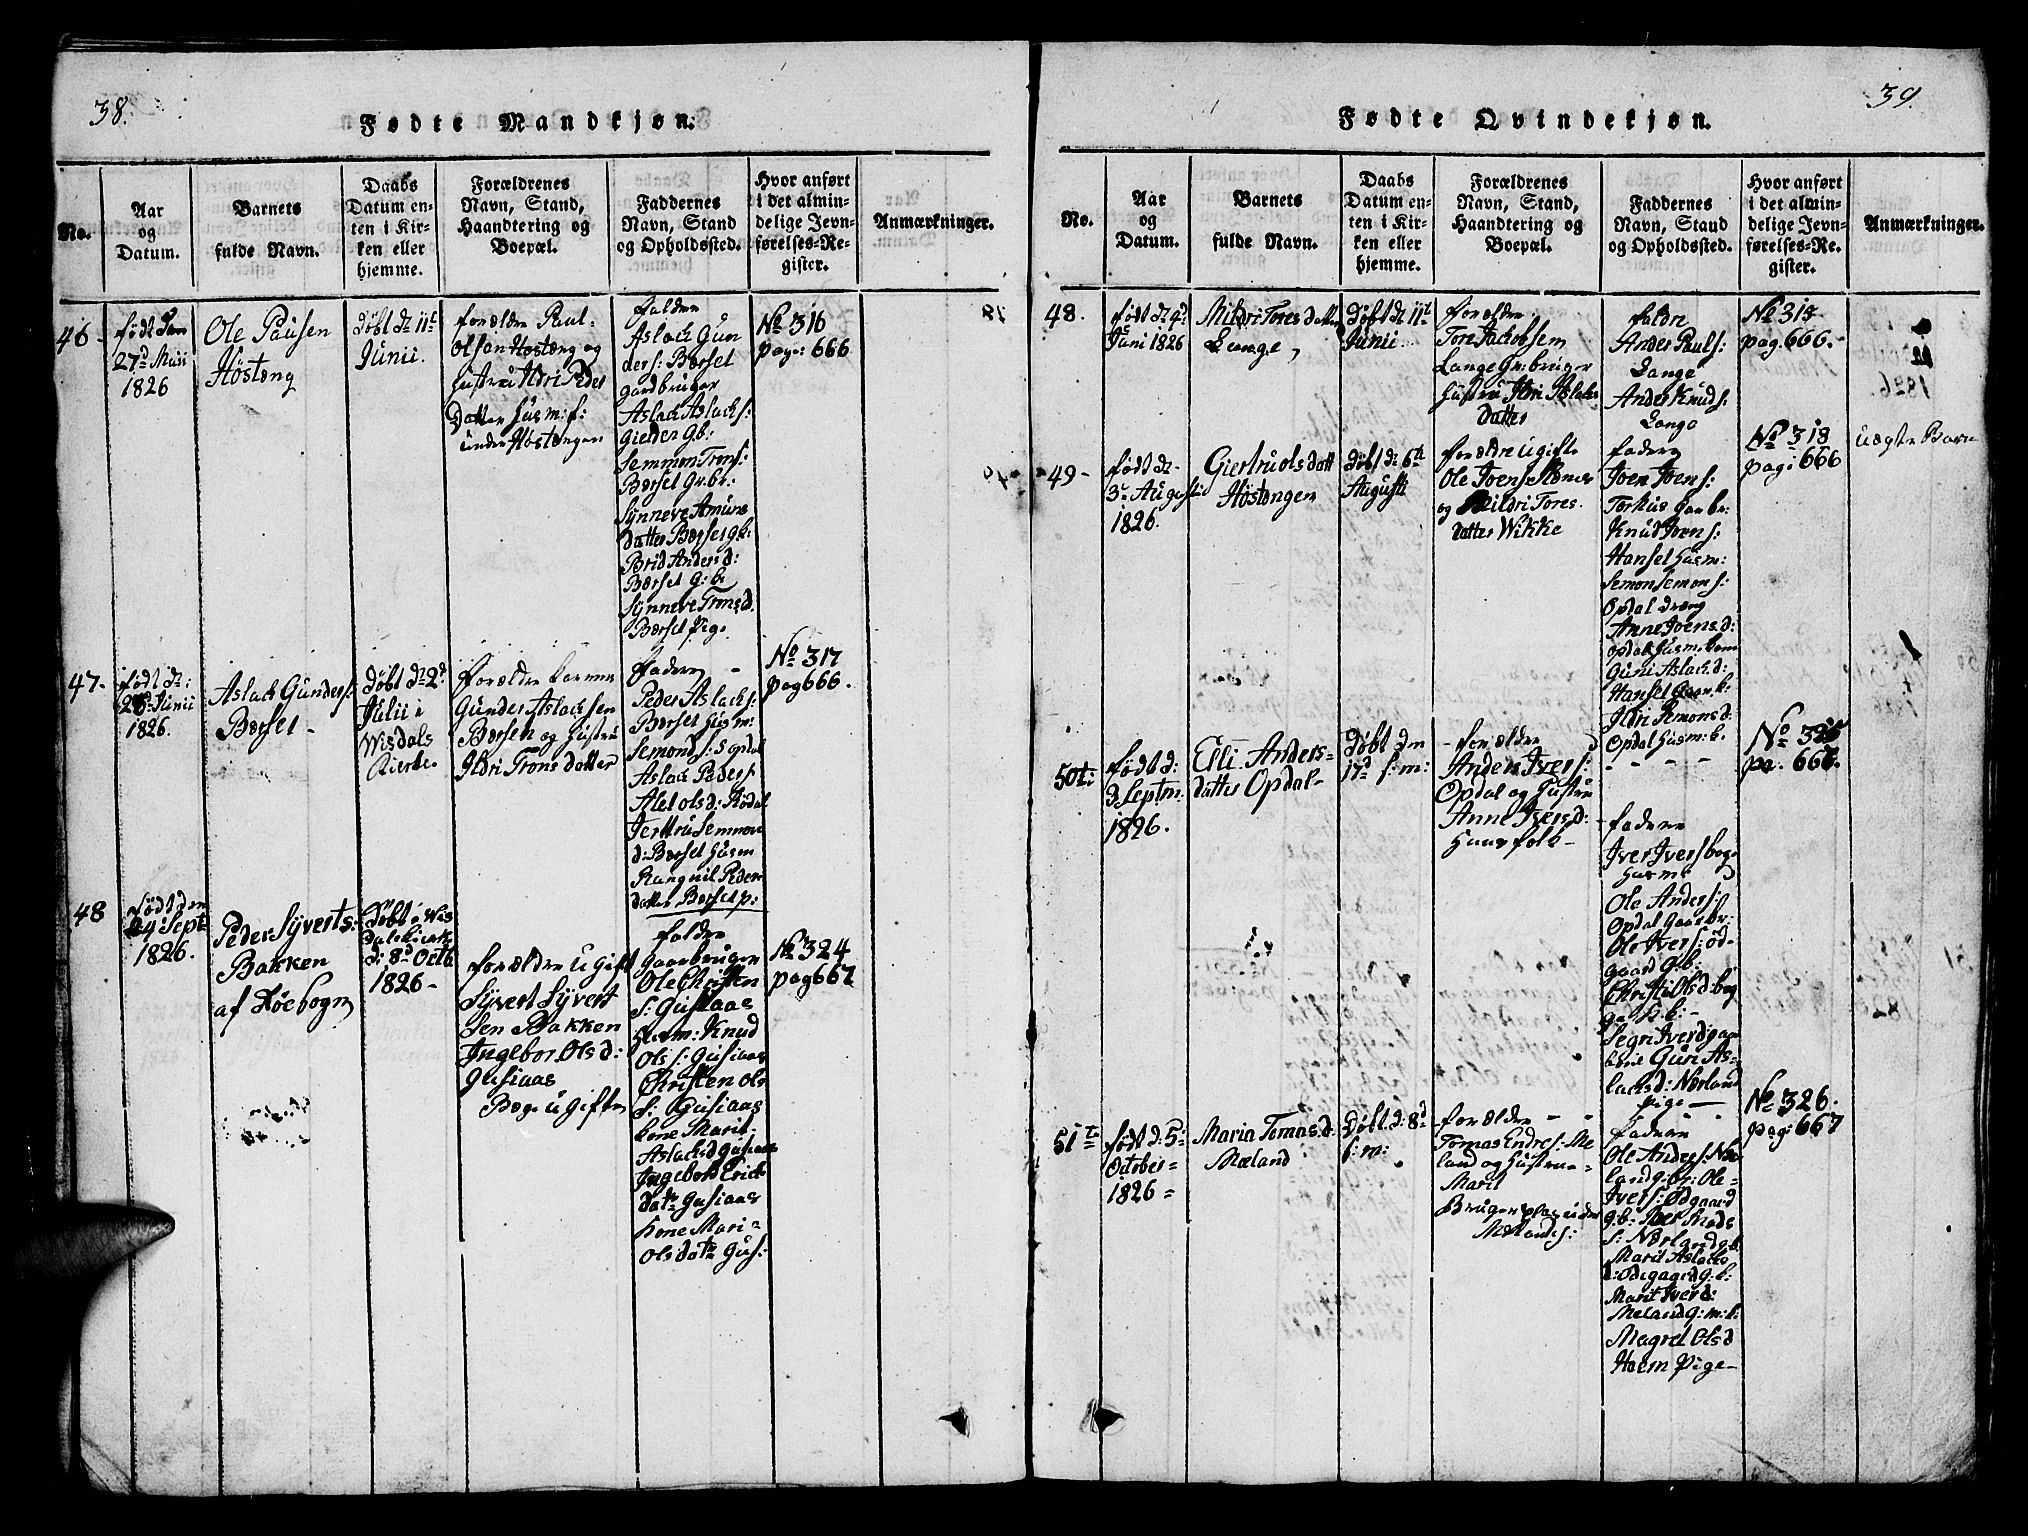 38.
Fødte Mandkjøn.
No.
Aar
og
Datum.
Barnets
fulde Navn.
Daabs
Datum en-
ten i Kir-
ken eller
hjemme.
Forældrenes
Navn, Stand,
Haandtering og
Boepæl.
Faddernes
Navn, Stand
og Opholdssted.
Hvor anført
i det almin-
delige Jevn-
førelses-Re-
gister.
Anmærkninger.
46-
født den
27d Maii
1826
Ole Paulsen
Høstæng
Døbt d: 11te
Junii.
forældre Paul-
Olsen Høstæng og
hustru Ildri Peder
Datter husm: f:
under Høstængen
faldre
Aslack Gun
ders: Børset
gardbruger
Aslack Aslacks:
Gielden G.b:
Semmon Trons:
Børset Gr.br:
Synneve Amuns
datter Børset G.b:
Brid Anders d:
Børset G:b
Synneve Trons d.
Børset Pige
No 316
pag: 666
47-
født d:
28d Junii
1826.
Aslack Gunders:
Børset -
Døbt d: 2d
Julii i
Wisdals
Kierke.
forældre
Gunder Aslacksen
Børsen og hustru
Ildri Trons datter
fadere -
Peder Aslacks:
Børset husm:
Semond s: Sopdal
Aslack Peders
Alet olsd: Rødal
Jerttru Semmon
d: Børset husm
Rangnil Peder
datter Børset p:
No 317
pag 666.
48
Født den
24 Septr
1826.
Peder Syverts-
Bakken
af Løebogn
Døbt i Wis
dals kierk
d: 8d Octb
1826-
forældre u gift
Syvert Syvert
sen Bakken
Ingebor Ols d:
Gusiaas
Bege u gifte
faldre
gaarbruger
Ole Christen
s: Gusiaas
husm: Knud
Ols s: Gusiaas
Christen ols
s: Gusiaas
kone Marit
Aslacksd Gusiaas
Ingebor Erick
datr Gusiaas
kone Mari-
olsdatr Gus:
No 324
pag 667
39.
Fødte Qvindekjøn.
No.
Aar
og
Datum.
Barnets
fulde Navn.
Daabs
Datum en-
ten i Kir-
ken eller
hjemme.
Forældrenes
Navn, Stand,
Haandtering og
Boepæl.
Faddernes
Navn, Stand
og Opholdssted.
Hvor anført
i det almin-
delige Jevn-
førelses-Re-
gister.
Anmærkninger.
48.
født d: 4d
Juni 1826
Mildri Tores datter
Lange,
Døbt d: 11te
Junii.
forældre
Tore Jackobsen
Lange Gr: bruger
hustru Ildri Aslaks
datter
faldre
Ander Pauls:
Lange
Ander Knuds:
Lange
No 315
pag. 666.-
49-
født d:-
3d Augusti
1826.
Giertru ols datt
Høstengen
Døbt d: 6te
Augusti
forældre ugifte
Ole Joens
og Mildri Tores.
datter Wikke
fadere
Joen Joens:
Torhus Gaar br.
Knud Joens:
Hansel husm:
Semon Semons:
Opdal dræng
Anne Joens d:
opdal husm. kone
Guni Aslack d:
Hansel Gaar.k:
Ildri Semons d:
Opdal husm: k.
No 318
pag: 666
uægte Barn
50t:
født d:
d: Septm:
1826.
Elli Anders-
datter Opdal-
Døbt den
17d s: m:
- forældre
Anders Ivers:
Opdal og hustru
Anne Ivers d:
huusfolk-
- fadere
Iver Ivers bog-
husm:
Ole Anders:
Opdal Gaarbr.
Ole Ivers: Ød-
gaard G:b:
Christi Ols d: bog
ge G.k:-
Segri Iverd gaar
Guri As-
lachs d: Nærland
Pige -
No 325
pa. 667.
51te
født d: 5:
October
1826-
Maria Tomas d:
Mæland
Døbt d: 8d
s: m:
forældre
Tomas Endres: Me
land og hustrue
Marit
Bruger plas under
Mælands:
fadere
Ole Anders: Nær
land g.br: Ole-
Ivers: Ødgaard
g:b:
s: Nærland g.b.
Marit Aslachs
d: Ødegaard g:k:
Marit Iver d:
Meland G:m:k:
Magrel Ols d
Haem Pige-
No 326.
pag: 667